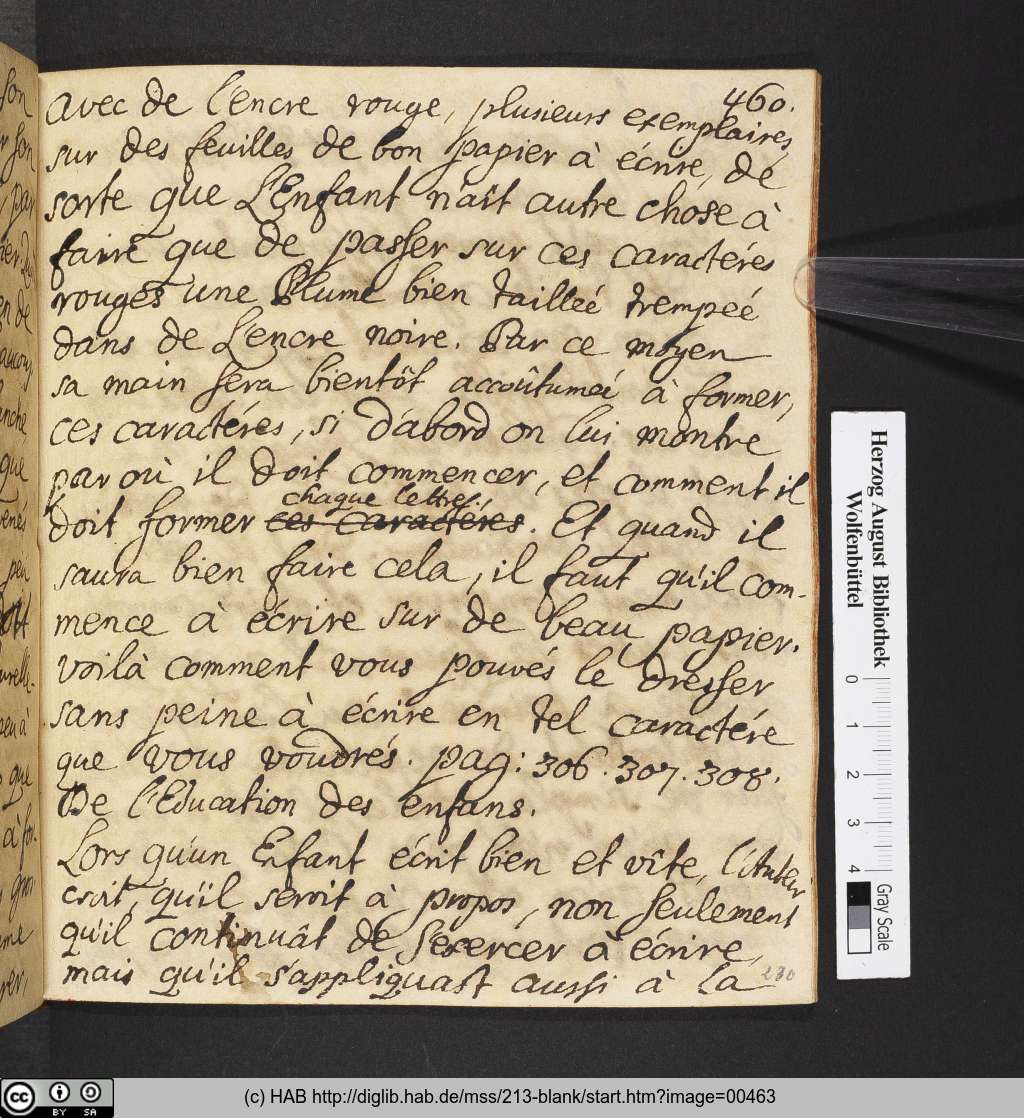 460.
avec de l'encre rouge, plusieurs exemplaires
sur des feuilles de bon papier à écrire, de
sorte que L'Enfant n'aît autre chose à
faire que de passer sur ces caractéres
rouges une Plume bien tailleé trempeé
dans de L'encre noire. Par ce moyen
sa main sera bientôt accoûtumeé à former,
ces caractéres, si d'abord on lui montre
par où il doit commencer, et comment il
chaque lettre.
doit former ces caractéres. Et quand il
saura bien faire cela, il faut qu'il com-
mence à écrire sur de beau papier.
voilà comment vous pouvés le dresser
sans peine à écrire en tel caractére
que vous voudrés. pag: 306. 307. 308.
De l'Education des enfans.
Lors qu'un Enfant écrit bien et vîte, l'Auteur
croit, qu'il seroit à propos, non seulement
qu'il continuât de s'exercer à écrire,
mais qu'il s'appliquast aussi à La
230
Herzog August Bibliothek
Wolfenbüttel
0 1 2 3 4
Gray Scale
cc BY SA
(c) HAB http://diglib.hab.de/mss/213-blank/start.htm?image=00463